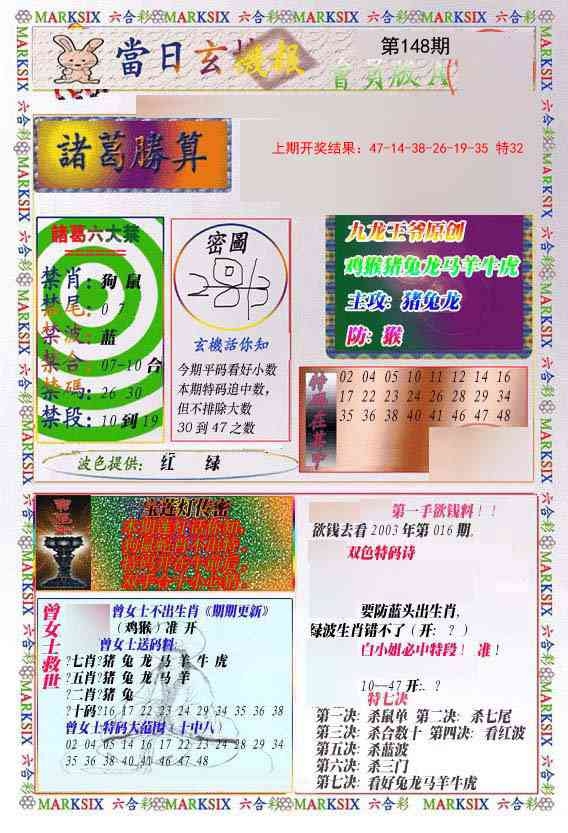 MARKSIX 六合彩 MARKSIX 六合彩 MARKSIX 六合彩 MARKSIX 六合彩
當日玄機报
第148期
會員版A
諸葛勝算
上期开奖结果: 47-14-38-26-19-35 特32
諸葛六大禁
禁肖: 狗 鼠
禁尾: 0 7
禁波: 蓝
禁合: 07-10 合
禁碼: 26 30
禁段: 10 到 19
密圖
玄機活你知
今期平码看好小数
本期特码追中数,
但不排除大数
30 到 47 之数
九龙王爷原创
鸡猴猪兔龙马羊牛虎
主攻: 猪兔龙
防: 猴
特码在其中
02 04 05 10 11 12 14 16
17 22 23 24 26 28 29 34
35 36 38 39 41 46 47 48
波色提供: 红 绿
宝莲灯传密
第一手欲钱料!!
欲钱去看 2003 年第 016 期。
双色特码诗
要防蓝头出生肖,
绿波生肖错不了 (开: ? )
白小姐必中特段! 准!
10--47 开:. ?
特七决
第一决: 杀鼠单 第二决: 杀七尾
第三决: 杀合数十 第四决: 看红波
第五决: 杀蓝波
第六决: 杀三门
第七决: 看好兔龙马羊牛虎
曾女士救世
曾女士不出生肖《期期更新》
(鸡猴) 准 开
曾女士送码料:
?七肖?猪 兔 龙 马 羊 牛 虎
?五肖?猪 兔 龙 马 羊
?二肖?猪 兔
?十码?16 17 22 23 24 29 34 35 36 38
曾女士特码大范围 (十中八)
02 04 05 14 16 17 22 23 24 29 34
35 36 38 40 41 46 47 48
MARKSIX 六合彩 MARKSIX 六合彩 MARKSIX 六合彩 MARKSIX 六合彩